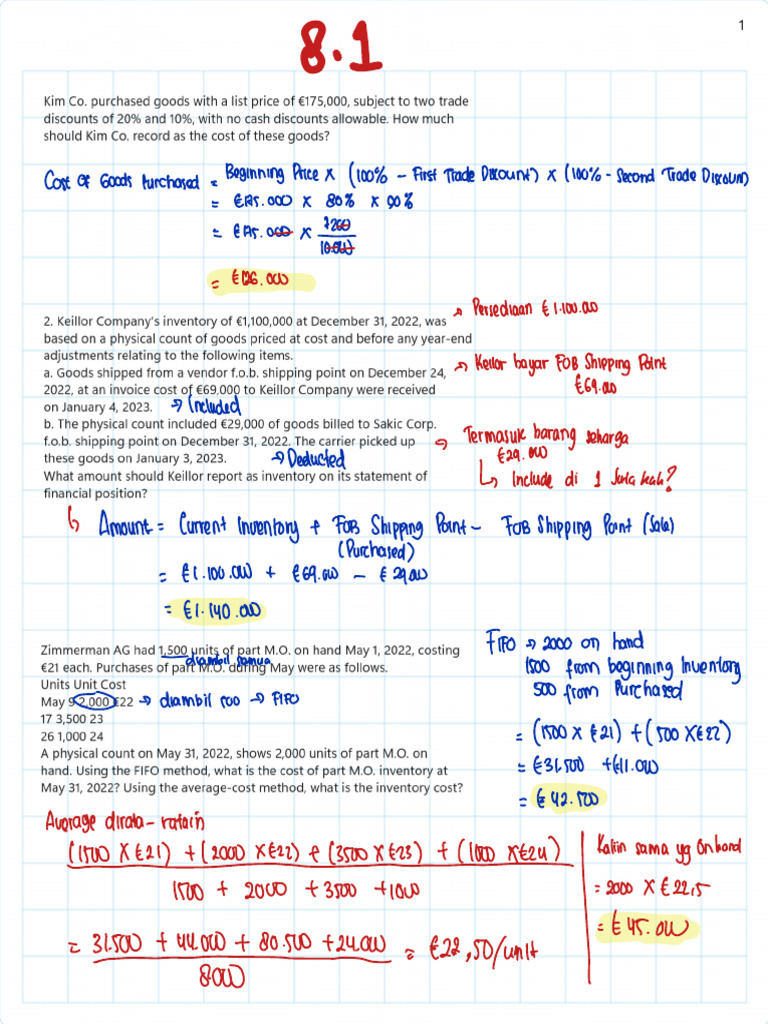 1
8.1
Kim Co. purchased goods with a list price of €175,000, subject to two trade
discounts of 20% and 10%, with no cash discounts allowable. How much
should Kim Co. record as the cost of these goods?
Cost of Goods Purchased = Beginning Price x (100% - First Trade Discount) x (100% - Second Trade Discount)
= €175.000 x 80% x 90%
= €175.000 x 7200
10.000
= €126.000
2. Keillor Company's inventory of €1,100,000 at December 31, 2022, was
based on a physical count of goods priced at cost and before any year-end
adjustments relating to the following items.
→ Persediaan €1.100.000
a. Goods shipped from a vendor f.o.b. shipping point on December 24,
2022, at an invoice cost of €69,000 to Keillor Company were received
on January 4, 2023. → Included
→ Keilor bayar FOB Shipping Point
€69.000
b. The physical count included €29,000 of goods billed to Sakic Corp.
f.o.b. shipping point on December 31, 2022. The carrier picked up
these goods on January 3, 2023. → Deducted
→ Termasuk barang seharga
€29.000
↳ Include di 1 Juta kah?
What amount should Keillor report as inventory on its statement of
financial position?
↳ Amount = Current Inventory + FOB Shipping Point - FOB Shipping Point (Sale)
(Purchased)
= €1.100.000 + €69.000 - €29.000
= €1.140.000
Zimmerman AG had 1,500 units of part M.O. on hand May 1, 2022, costing
diambil semua
€21 each. Purchases of part M.O. during May were as follows.
Units Unit Cost
May 9 2,000 €22 → diambil 500 → FIFO
17 3,500 23
26 1,000 24
A physical count on May 31, 2022, shows 2,000 units of part M.O. on
hand. Using the FIFO method, what is the cost of part M.O. inventory at
May 31, 2022? Using the average-cost method, what is the inventory cost?
FIFO → 2000 on hand
1500 from beginning Inventory
500 from Purchased
= (1500 x €21) + (500 x €22)
= €31.500 + €11.000
= € 42.500
Average dirata-ratain
(1500 x €21) + (2000 x €22) + (3500 x €23) + (1000 x €24)
1500 + 2000 + 3500 + 1000
= 31.500 + 44.000 + 80.500 + 24.000 = €22,50/unit
8000
Kaliin sama yg Onhand
= 2000 x €22,5
= €45.000